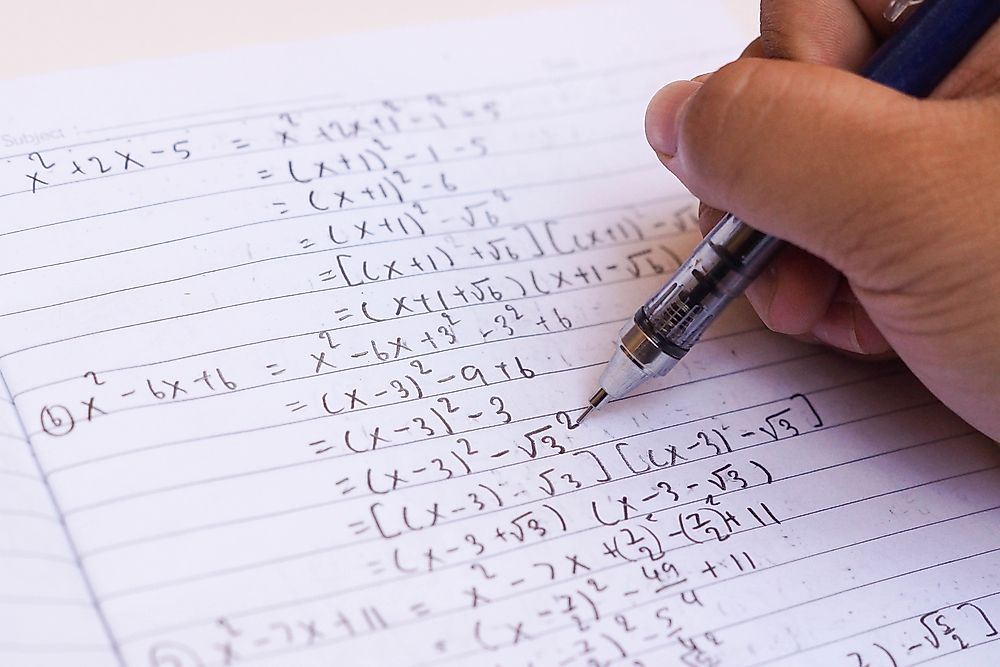 Subject :
x² + 2x - 5 = x² + 2x + 1² - 1² - 5
= (x+1)² - 1 - 5
= (x+1)² - 6
= (x+1)² - √6²
= [(x+1) + √6] [(x+1) - √
= (x+1+√6) (x+1-√6)
(b) x² - 6x + 6 = x² - 6x + 3² - 3² + 6
= (x-3)² - 9 + 6
= (x-3)² - 3
= (x-3)² - √3²
= [(x-3) - √3] [(x-3) - √3]
= (x-3+√3) (x-3-√3)
x² - 7x + 11 = x² - 7x + (7/2)² - (7/2)² + 11
= (x - 7/2)² - 49/4 + 11
- 7/2)² - 5/4
) - √5/2]